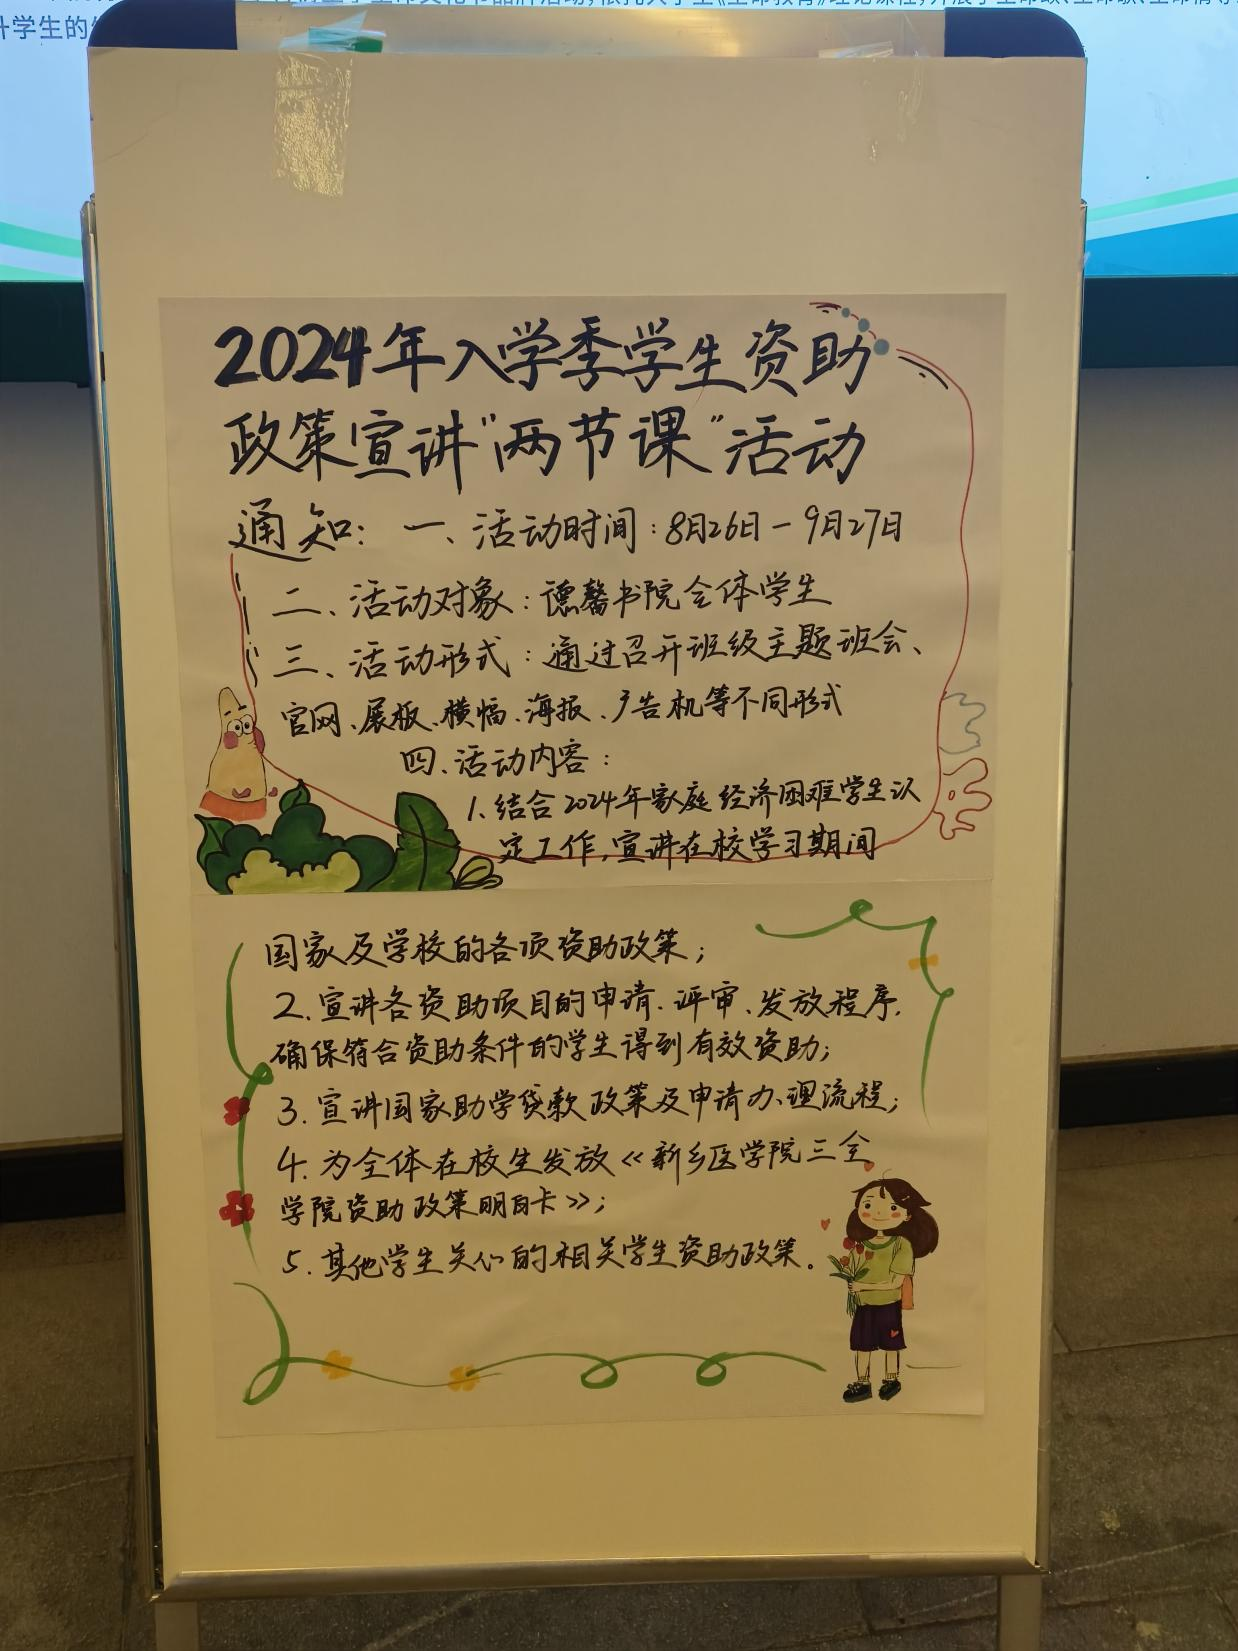 升学生的
2024年入学季学生资助
政策宣讲“两节课”活动
通知：一、活动时间：8月26日—9月27日
二、活动对象：德馨书院全体学生
三、活动形式：通过召开班级主题班会、
官网、展板、横幅、海报、广告机等不同形式
四、活动内容：
1.结合2024年家庭经济困难学生认
定工作，宣讲在校学习期间
国家及学校的各项资助政策；
2.宣讲各资助项目的申请、评审、发放程序，
确保符合资助条件的学生得到有效资助；
3.宣讲国家助学贷款政策及申请办理流程；
4.为全体在校生发放《新乡医学院三全
学院资助政策明白卡》；
5.其他学生关心的相关学生资助政策。